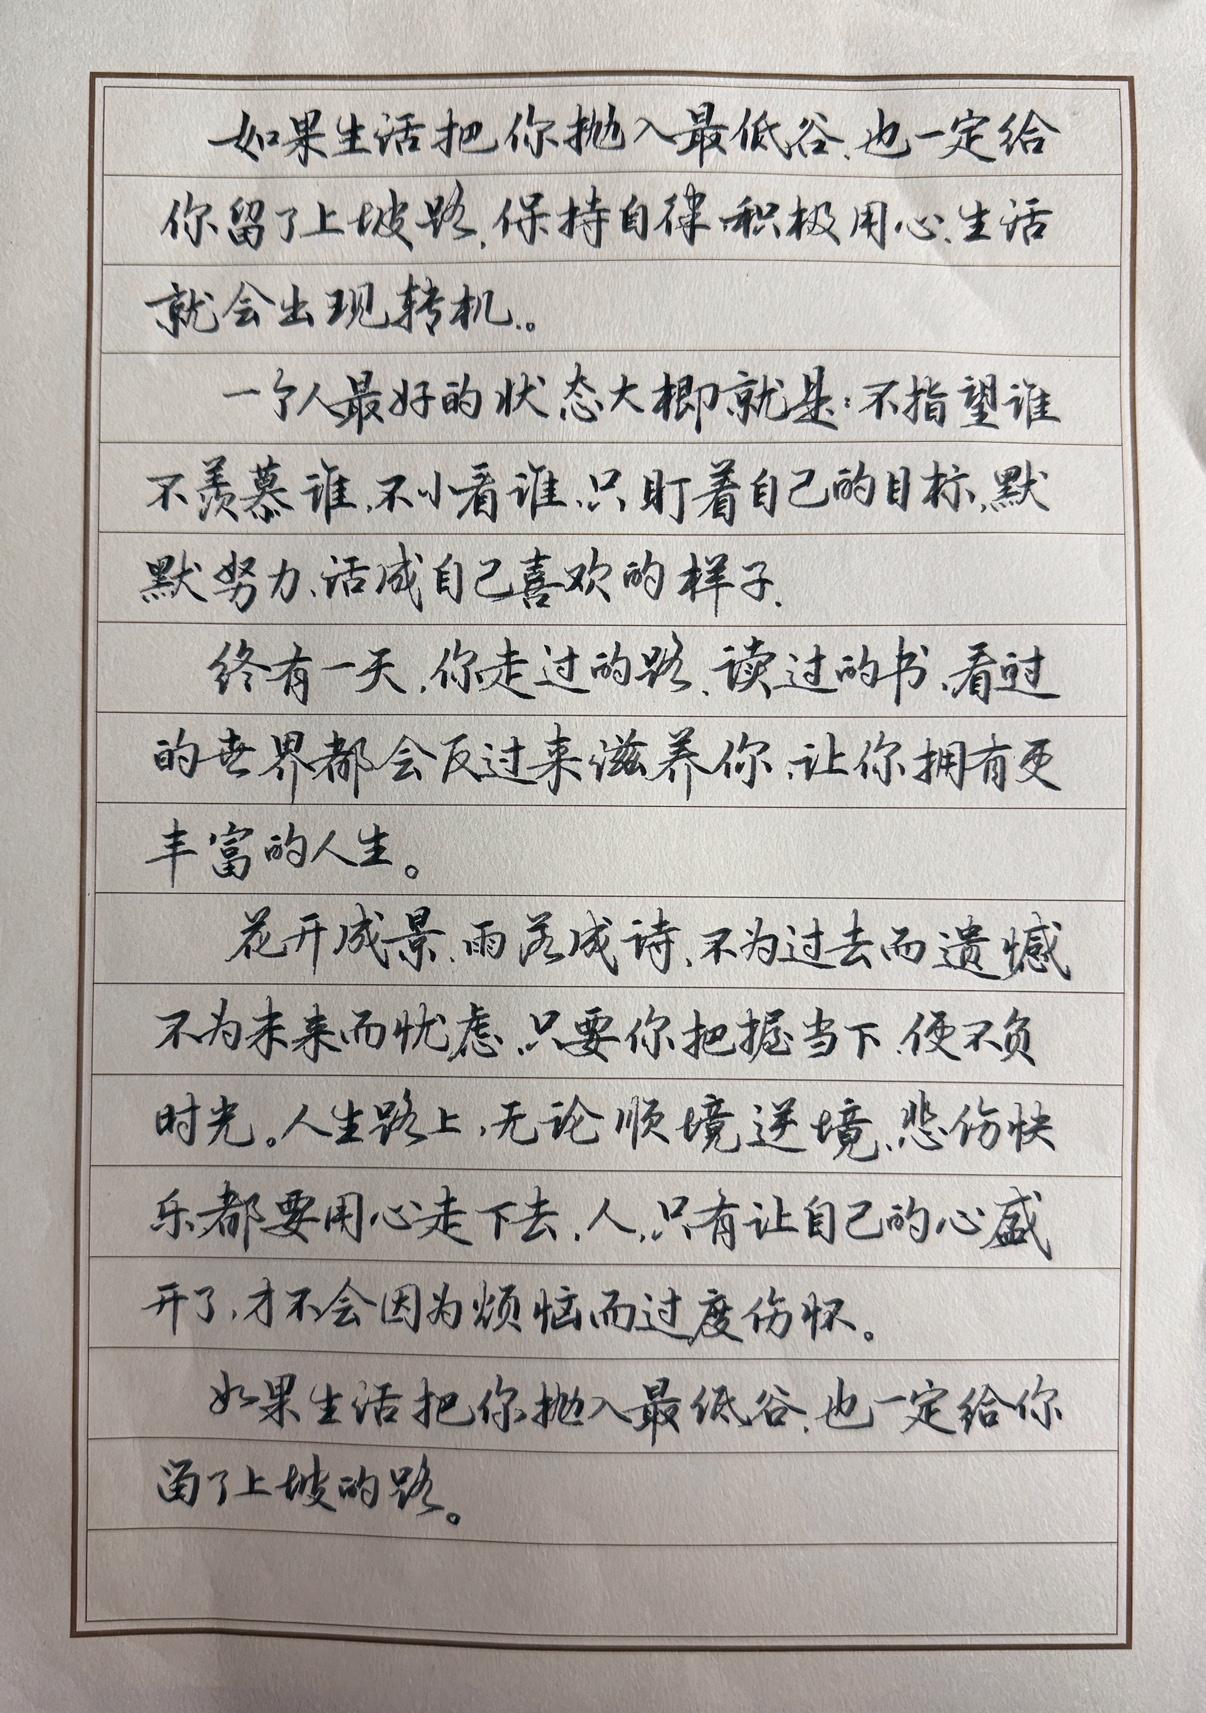 如果生活把你抛入最低谷,也一定给
你留了上坡路,保持自律积极用心,生活
就会出现转机。
一个人最好的状态大概就是:不指望谁
不羡慕谁,不小看谁,只盯着自己的目标,默
默努力,活成自己喜欢的样子.
终有一天,你走过的路、读过的书,看过
的世界都会反过来滋养你,让你拥有更
丰富的人生。
花开成景,雨落成诗,不为过去而遗憾
不为未来而忧虑,只要你把握当下,便不负
时光。人生路上,无论顺境逆境,悲伤快
乐都要用心走下去,人,只有让自己的心盛
开了,才不会因为烦恼而过度伤怀。
如果生活把你抛入最低谷,也一定给你
留了上坡的路。